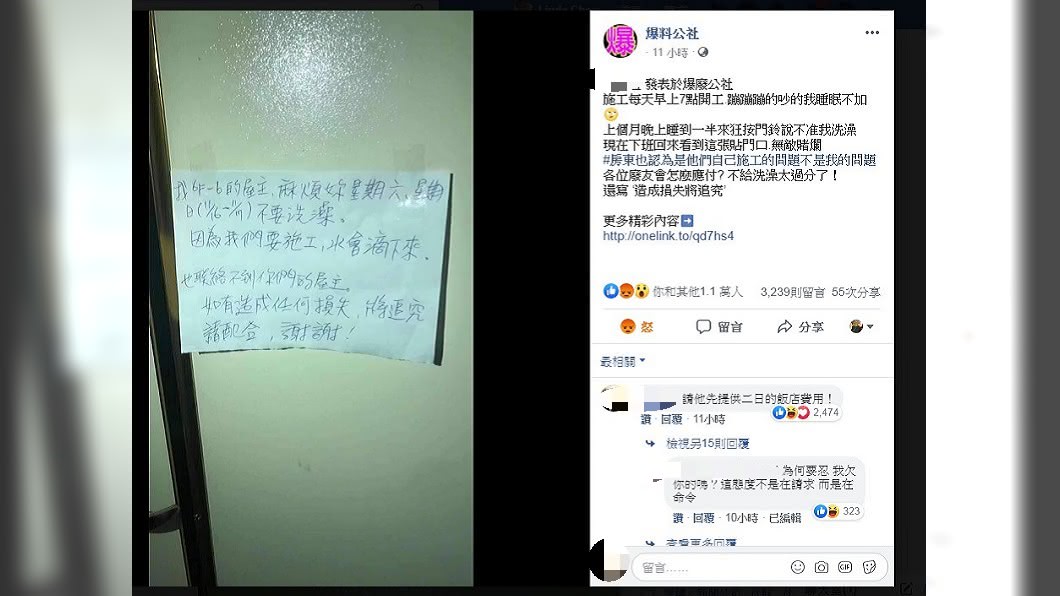 我6F-6的屋主,麻煩妳星期六、星期
日(11/16-11/17)不要洗澡。
因為我們要施工,水會滴下來。
也聯絡不到你們的屋主。
如有造成任何損失,將追究
請配合,謝謝!
爆料公社
11 小時
發表於爆廢公社
施工每天早上7點開工.蹦蹦蹦的吵的我睡眠不加
上個月晚上睡到一半來狂按門鈴說不准我洗澡
現在下班回來看到這張貼門口.無敵賭爛
#房東也認為是他們自己施工的問題不是我的問題
各位廢友會怎麼應付? 不給洗澡太過分了!
還寫 '造成損失將追究'
更多精彩內容➡
http://onelink.to/qd7hs4
你和其他1.1 萬人 3,239則留言 55次分享
怒 留言 分享
最相關
請他先提供二日的飯店費用!
2,474
讚 · 回覆 · 11小時
檢視另15則回覆
為何要忍 我欠
你的嗎?這態度不是在請求 而是在
命令
323
讚 · 回覆 · 10小時 · 已編輯
查看更多回覆
留言......